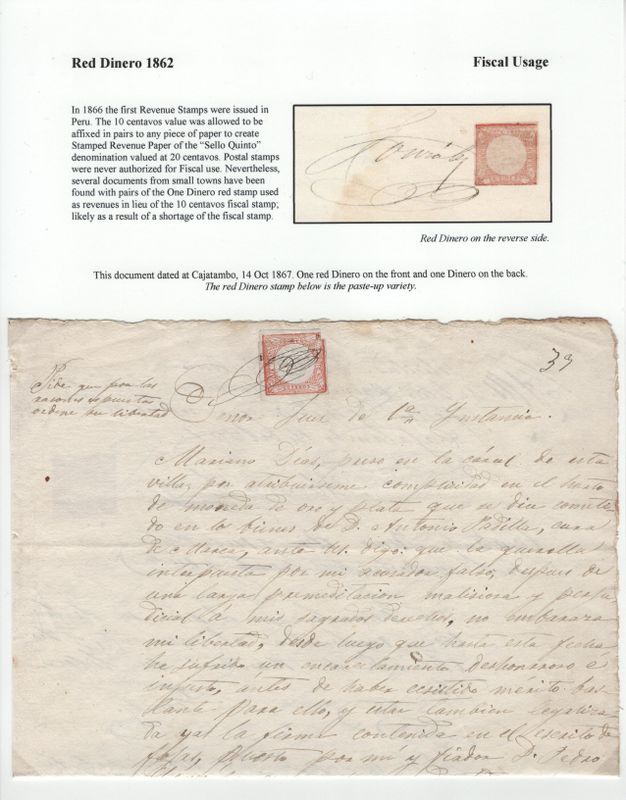 Red Dinero 1862
Fiscal Usage
In 1866 the first Revenue Stamps were issued in
Peru. The 10 centavos value was allowed to be
affixed in pairs to any piece of paper to create
Stamped Revenue Paper of the “Sello Quinto”
denomination valued at 20 centavos. Postal stamps
were never authorized for Fiscal use. Nevertheless,
several documents from small towns have been
found with pairs of the One Dinero red stamp used
as revenues in lieu of the 10 centavos fiscal stamp;
likely as a result of a shortage of the fiscal stamp.
Red Dinero on the reverse side.
This document dated at Cajatambo, 14 Oct 1867. One red Dinero on the front and one Dinero on the back.
The red Dinero stamp below is the paste-up variety.
39
Pide que por las
razones espuestas
ordene su libertad
Señor Juez de 1a Ynstancia.
Mariano Días, preso en la cárcel de esta
villa, por atribuirseme complicidad en el
de moneda de oro y plata que se dice cometi
do en los bienes de D. Antonio Padilla, cura
de ante U. digo: que la querella
interpuesta por mi acusador falso, despues de
una larga premeditacion maliciosa y perju
dicial á mis sagrados derechos, no embaraza
mi libertad, desde luego que hasta esta fecha
ha sufrido un encarcelamiento deshonroso e
injusto, ántes de haber ecsistido mérito bas
tante para ello, y estar tambien legaliza
da ya la firma contenida en el escrito de
fojas, por mí y fiador D. Pedro